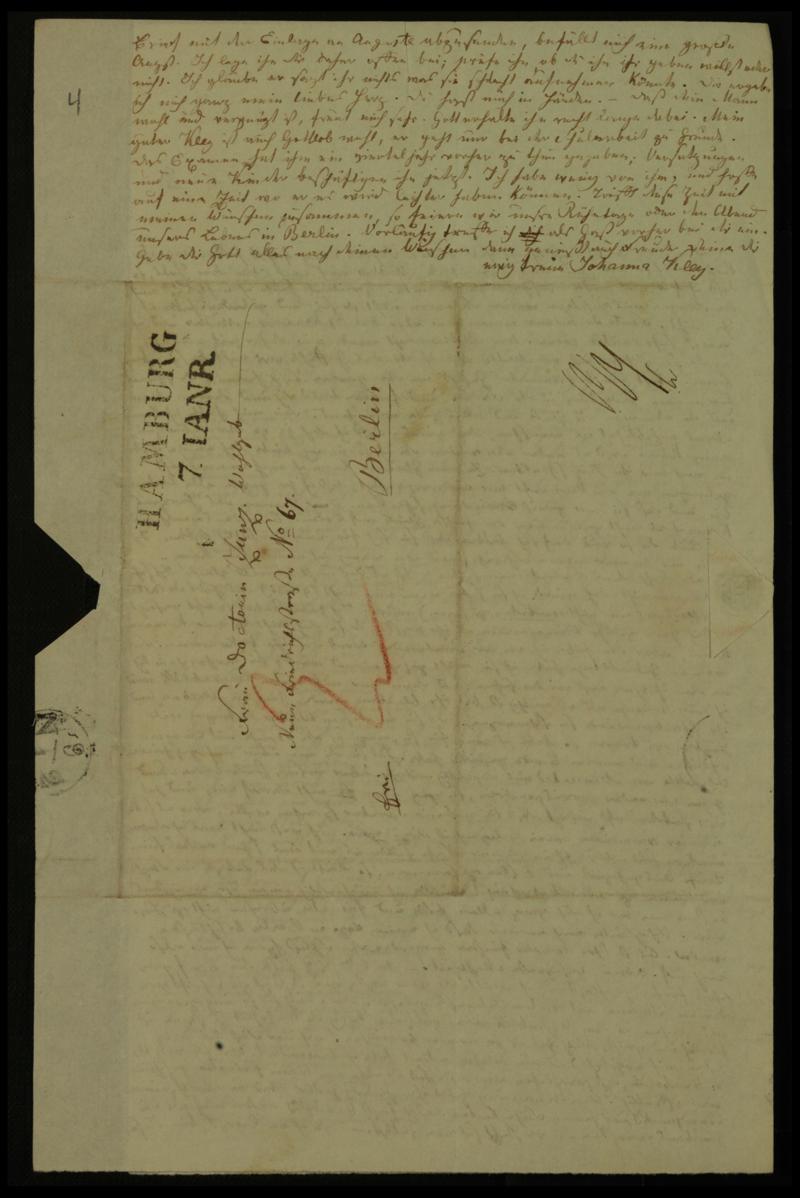 4
Brief mit der Einlage an Auguste abzusenden, befällt mich eine große
Angst. Ich lege ihn dir daher offen bei; prüfe ihn ob du ihn ihr geben willst oder
nicht. Ich glaube er sagt ihr nichts was sie schlecht aufnehmen könnte. Dir ergebe
ich mich ganz mein liebes Herz. Du hast mich in Händen. – Daß dein Mann
wohl und vergnügt ist, freut mich sehr. Gott erhalte ihn recht lange dabei. Mein
guter Kley ist auch Gottlob wohl, er geht nur bei der Schularbeit zu Grunde.
Das Examen hat ihm ein Vierteljahr vorher zu thun gegeben; Versetzungen
und neue Kinder beschäftigen ihn jetzt. Ich habe wenig von ihm, und hoffe
auf eine Zeit wo er es wird leichter haben können. Trifft diese Zeit mit
meinen Wünschen zusammen, so feiern wir unsre Ruhetage oder den Abend
unsers Lebens in Berlin. Vorläufig treffe ich als Gast vorher bei dir ein.
Gebe dir Gott alles nach deinen Wünschen dann genießt auch Freude deine dir
ewig treue Johanna Kley.
HAMBURG
7. IANR.
Frau Doctorin Zunz Wohlgeb
Neue Friedrichsstraße No 67.
Berlin
frei